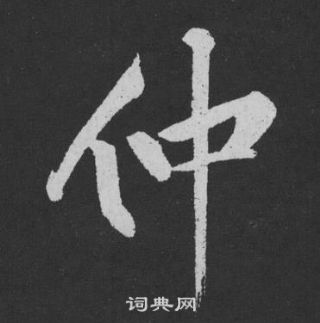 仲
词典网